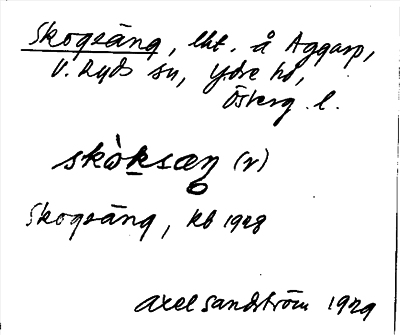 Skogsäng, lht. å Aggarp,
V. Ryds sn, Ydre hd,
Österg. l.
skòksæŋ (r)
Skogsäng, kb 1928
Axel Sandström 1929